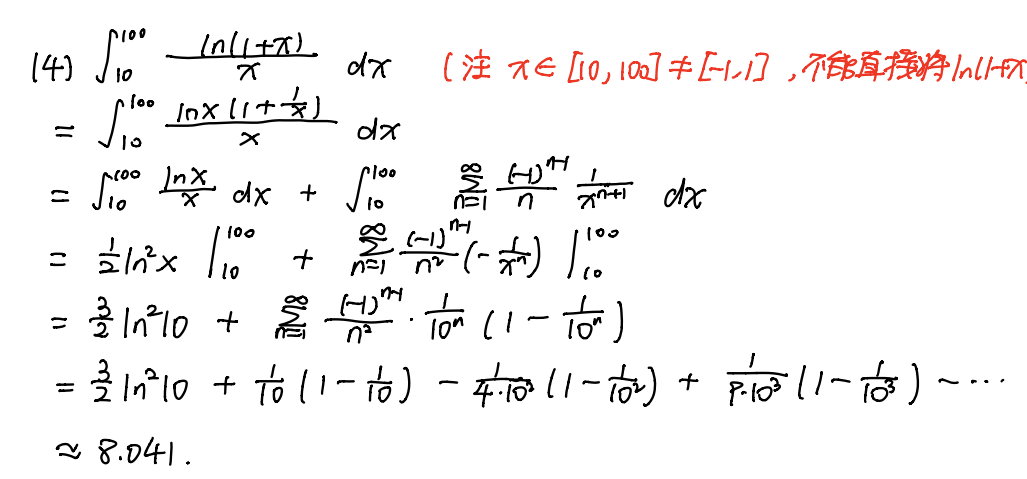 (4) ∫₁₀¹⁰⁰ ln(1+x)/x dx (注 x∈[10,100]≠[-1,1],不能直接将ln(1+x
= ∫₁₀¹⁰⁰ lnx(1+1/x)/x dx
= ∫₁₀¹⁰⁰ lnx/x dx + ∫₁₀¹⁰⁰ ∑_{n=1}^{∞} (-1)^{n-1}/n 1/x^{n+1} dx
= 1/2 ln²x |₁₀¹⁰⁰ + ∑_{n=1}^{∞} (-1)^{n-1}/n² (-1/xⁿ) |₁₀¹⁰⁰
= 3/2 ln²10 + ∑_{n=1}^{∞} (-1)^{n-1}/n² · 1/10ⁿ (1 - 1/10ⁿ)
= 3/2 ln²10 + 1/10 (1 - 1/10) - 1/(4·10³) (1 - 1/10²) + 1/(9·10³) (1 - 1/10³) - ···
≈ 8.041.